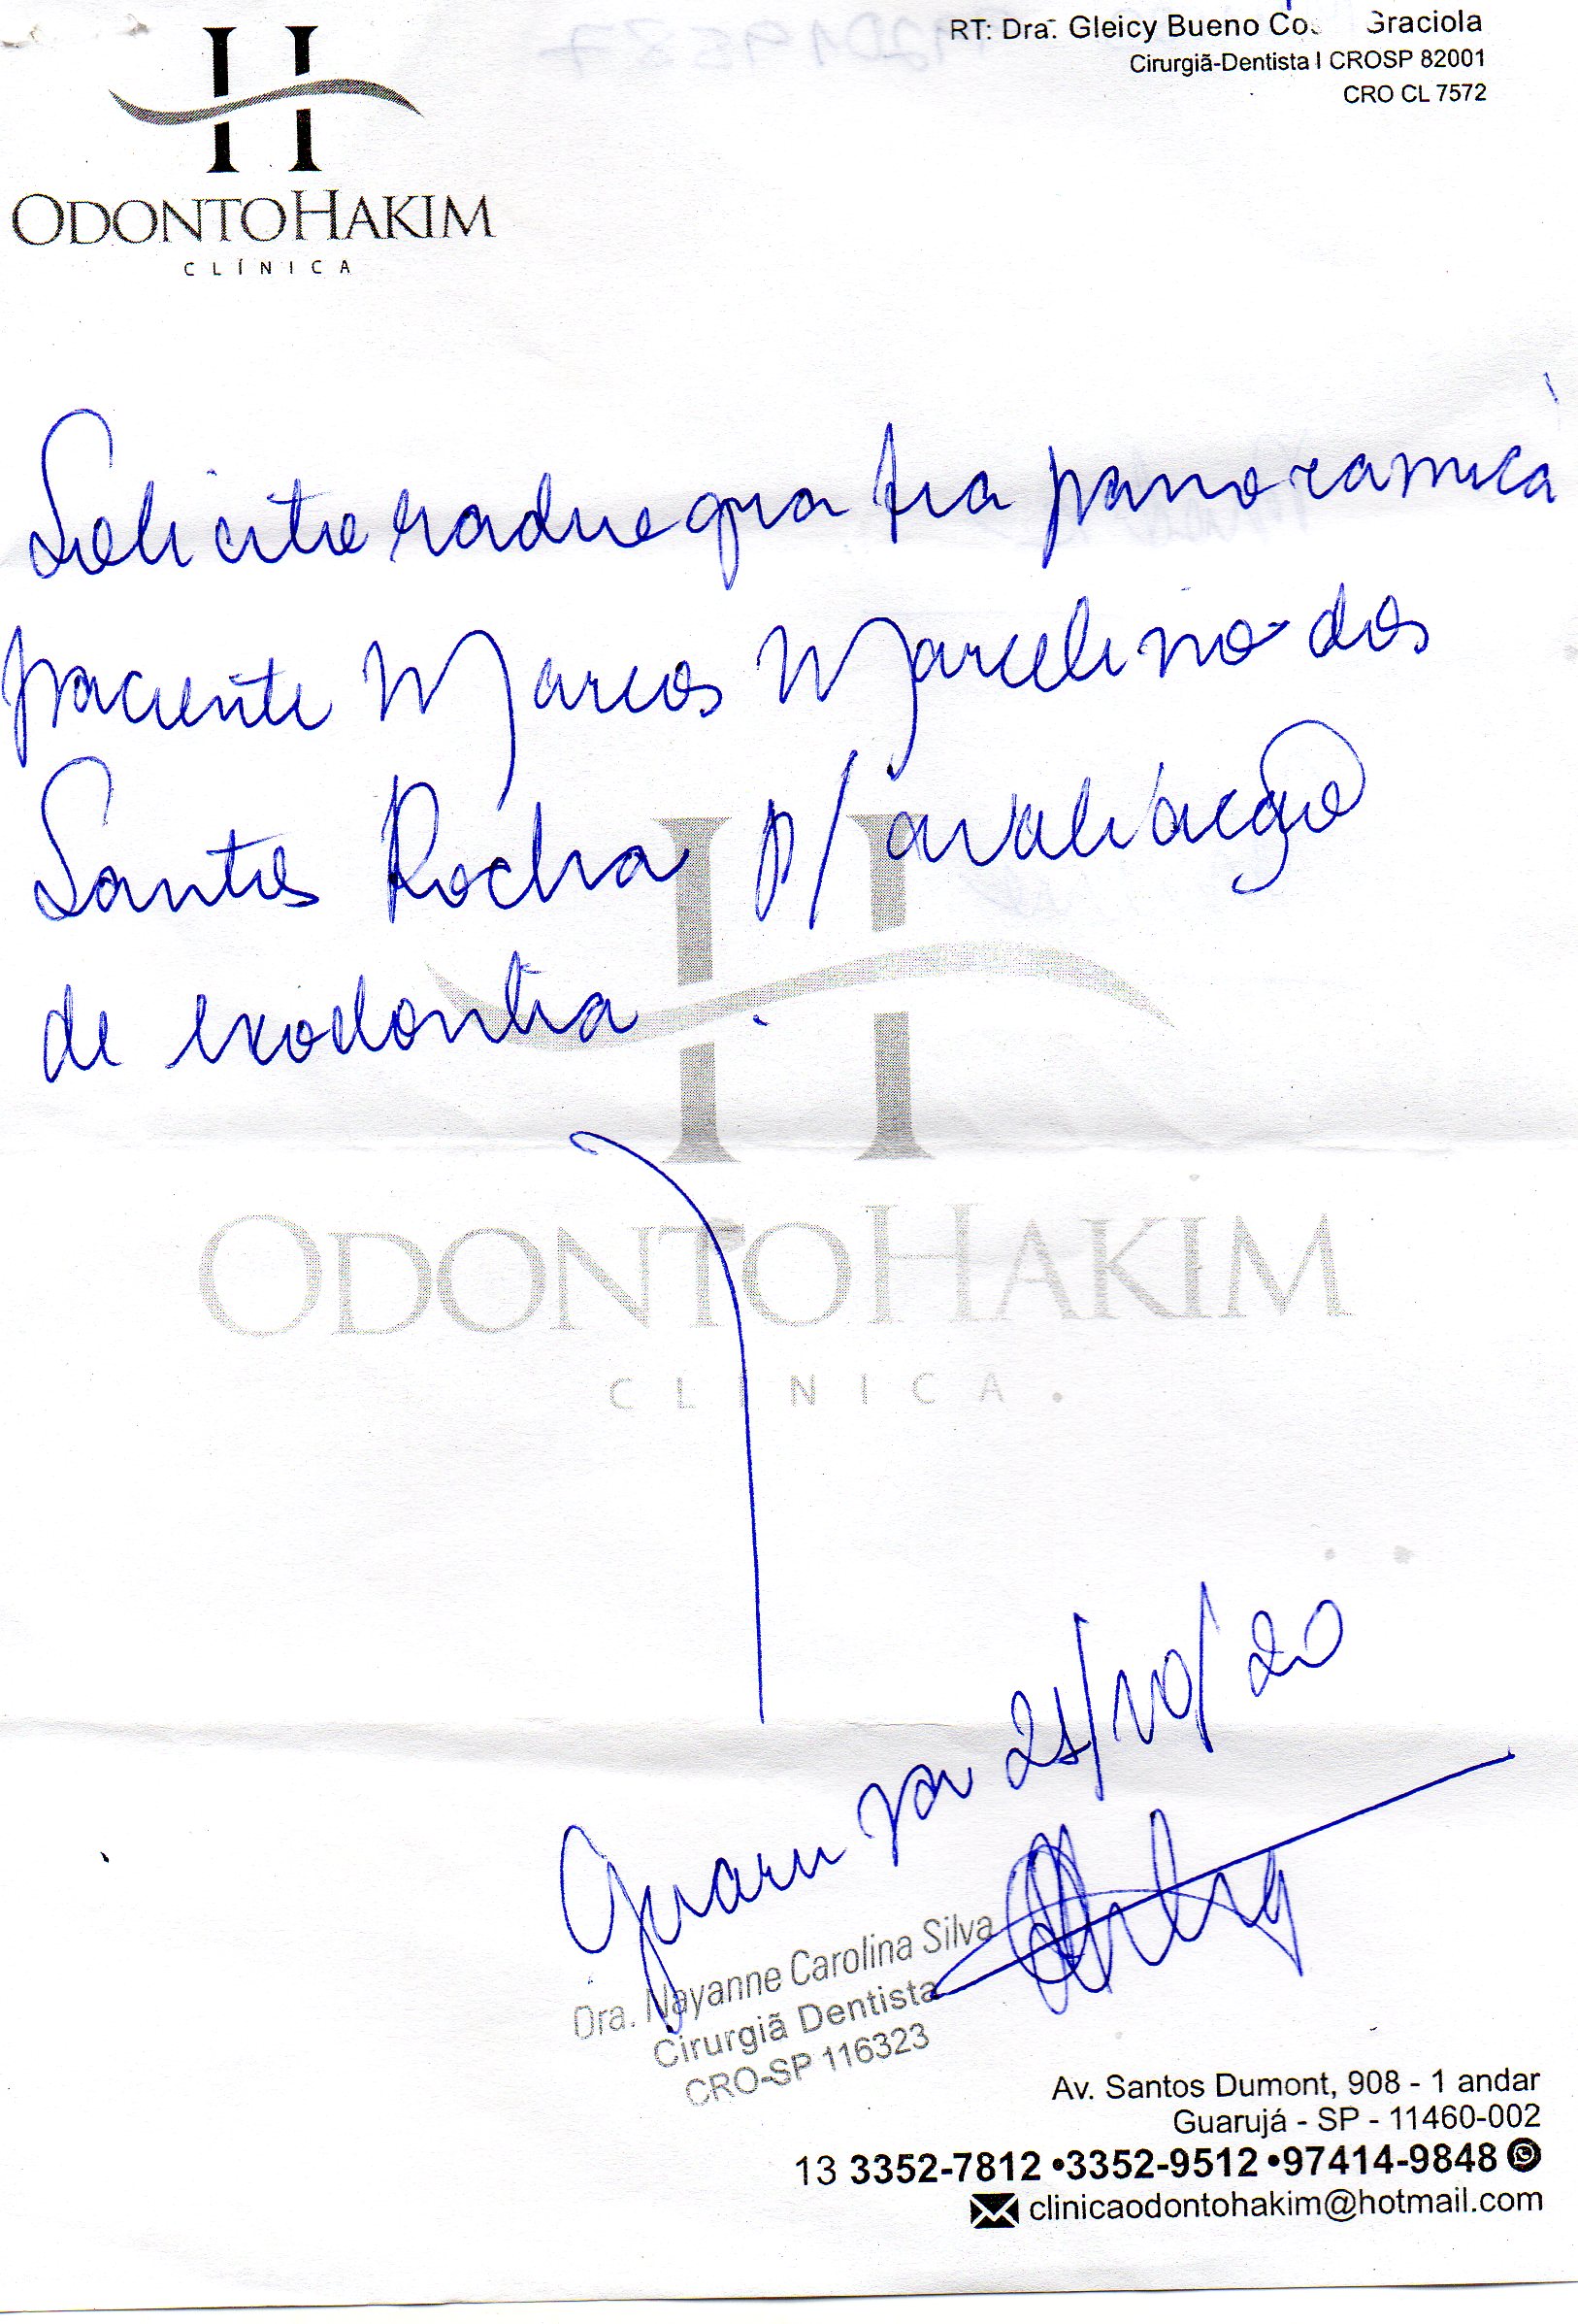 RT: Dra. Gleicy Bueno Graciola
Cirurgiã-Dentista I CROSP 82001
CRO CL 7572
ODONTOHAKIM
CLÍNICA
Solicito radiografia panoramica
paciente Marcos Marcelino dos
Santos Rocha p/ avaliação
de exodontia.
ODONTOHAKIM
CLÍNICA
Guaruja 21/10/20
Dra. Nayanne Carolina Silva
Cirurgiã Dentista
CRO-SP 116323
Av. Santos Dumont, 908 - 1 andar
Guarujá - SP - 11460-002
13 3352-7812 •3352-9512 •97414-9848
clinicaodontohakim@hotmail.com